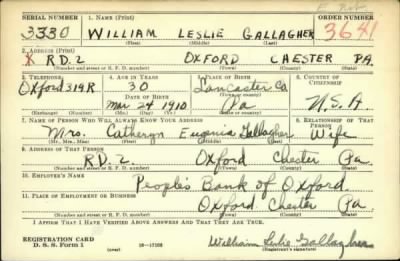 SERIAL NUMBER 1. NAME (Print) ORDER NUMBER
3330 WILLIAM LESLIE GALLAGHER 3641
(First) (Middle) (Last)
2. ADDRESS (Print)
X R.D. 2 OXFORD CHESTER PA.
(Number and street or R. F. D. number) (Town) (County) (State)
3. TELEPHONE 4. AGE IN YEARS 5. PLACE OF BIRTH 6. COUNTRY OF CITIZENSHIP
Oxford 319R 30 Lancaster Co
DATE OF BIRTH (Town or county)
Mar 24 1910 Pa U.S.A.
(Exchange) (Number) (Mo.) (Day) (Yr.) (State or country)
7. NAME OF PERSON WHO WILL ALWAYS KNOW YOUR ADDRESS 8. RELATIONSHIP OF THAT PERSON
Mrs. Catheryn Eugenia Gallagher Wife
(Mr., Mrs., Miss) (First) (Middle) (Last)
9. ADDRESS OF THAT PERSON
R.D. 2. Oxford Chester Pa.
(Number and street or R. F. D. number) (Town) (County) (State)
10. EMPLOYER'S NAME
People's Bank of Oxford
11. PLACE OF EMPLOYMENT OR BUSINESS
Oxford Chester Pa
(Number and street or R. F. D. number) (Town) (County) (State)
I AFFIRM THAT I HAVE VERIFIED ABOVE ANSWERS AND THAT THEY ARE TRUE.
REGISTRATION CARD
D. S. S. Form 1 (over) 16-17105 William Leslie Gallagher
(Registrant's signature)